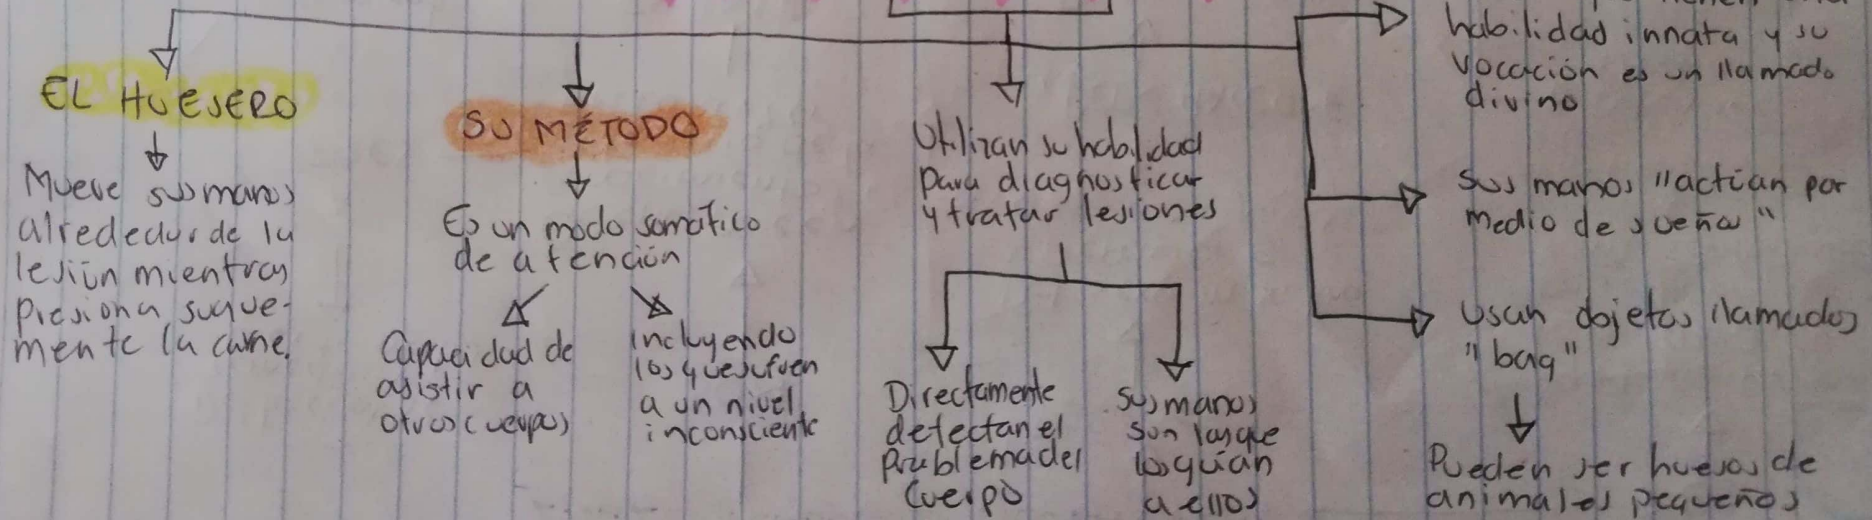 EL HUESERO
Mueve sus manos
alrededor de la
lesión mientras
presiona suave-
mente la carne.
SU MÉTODO
Es un modo somático
de atención
Capacidad de
asistir a
otros cuerpos
incluyendo
los que sufren
a un nivel
inconsciente
Utilizan su habilidad
para diagnosticar
y tratar lesiones
Directamente
detectan el
problema del
cuerpo
Sus manos
son las que
los guían
a ellos
habilidad innata y su
vocación es un llamado
divino
Sus manos "actían por
medio de sueña"
Usan objetos llamados
"baq"
Pueden ser huesos de
animales pequeños